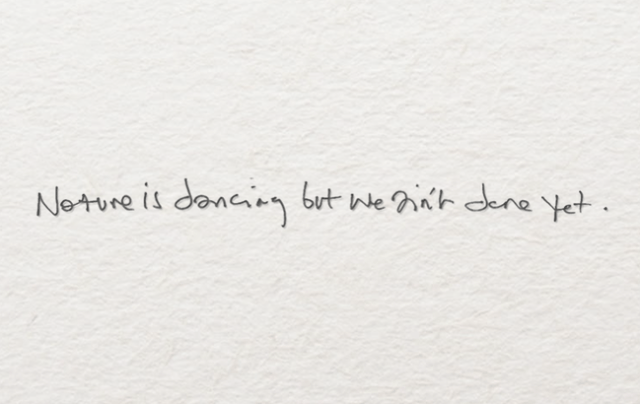 Nature is dancing but we ain't done yet.